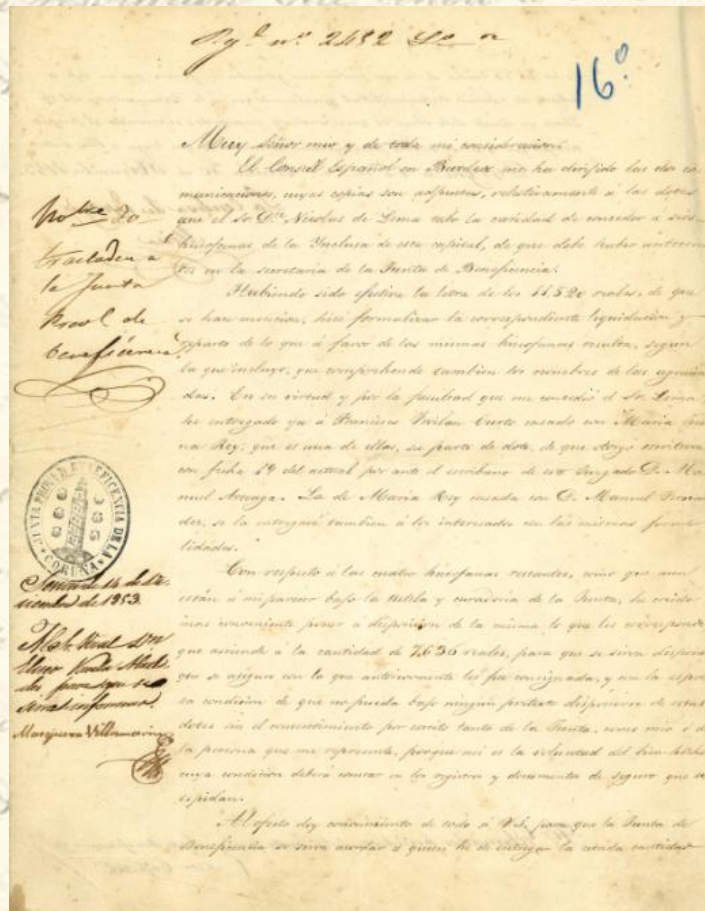 Rg.do nº 2452
16º
Muy Señor mio y de toda mi consideracion.
El Consul Español en Burdeos me ha dirijido las dos co-
municaciones, cuyas copias son adjuntas, relativamente á las dotes
que el Sr Dn. Nicolas de Lema tubo la caridad de conceder a seis
huerfanas de la Ynclusa de esa capital, de que debe haber anteceden-
tes en la secretaria de la Junta de Beneficencia.
Habiendo sido efectiva la letra de los 11.520 reales, de que
se hace mencion, hice formalizar la correspondiente liquidacion y
reparto de lo que á favor de las mismas huerfanas resulta, segun
la que incluyo, que comprehende tambien los nombres de las agracia-
das. En su virtud y por la facultad que me concedió el Sr. Lema
he entregado ya á Francisco Curto casado con Maria
na Rey, que es una de ellas, su parte de dote, de que otorgó escritura
con fecha 19 del actual por ante el escribano de este Juzgado D. Ma-
nuel Arcaga. La de Maria Rey casada con D. Manuel
dez, se la entregaré tambien á los interesados con las mismas forma-
lidades.
Con respecto á las cuatro huerfanas restantes, como que aun
están á mi parecer bajo la tutela y curaduria de la Junta, he creido
mas conveniente poner a disposicion de la misma lo que les corresponde
que asciende á la cantidad de 7,630 reales, para que se sirva disponer
que se asegure con lo que anteriormente les fue consignado, y con la espre-
sa condicion de que no pueda bajo ningun pretexto disponerse de estas
dotes sin el consentimiento por escrito tanto de la Junta, como mio ó de
la persona que me represente, porque asi es la voluntad del bien hechor
cuya condicion deberá constar en los registros y documentos de seguro que se
espidan.
Al efecto doy conocimiento de todo á V.S. para que la Junta de
Beneficencia se sirva acordar á quien he de entregar la citada cantidad
Nobre 20
Trasladese a
la Junta
Provl de
Beneficencia
JUNTA PROVL DE BENEFICENCIA DE LA CORUÑA
de 14 de Di-
ciembre de 1853.